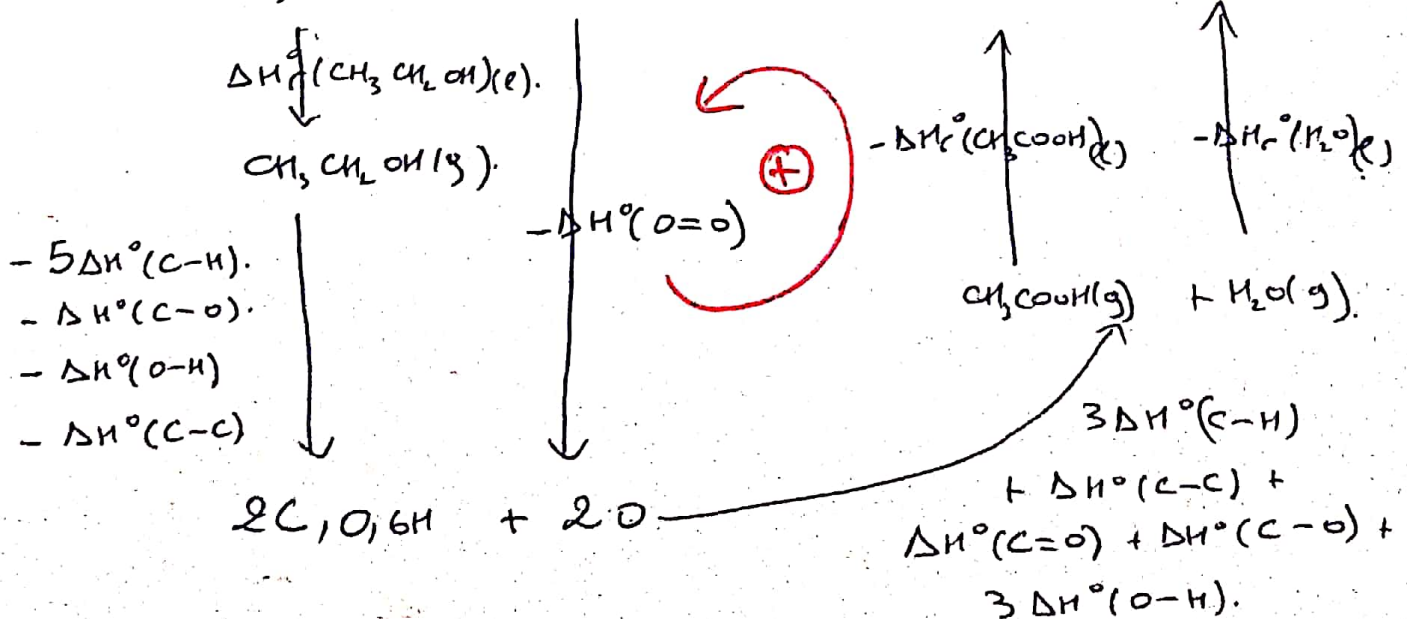 ΔH°(CH₃ CH₂ OH)(ℓ).
CH₃ CH₂ OH(g).
- 5ΔH°(C-H).
- ΔH°(C-O).
- ΔH°(O-H)
- ΔH°(C-C)
- ΔH°(O=O)
+
-ΔHr°(CH₃COOH)(ℓ)
-ΔHr°(H₂O)(ℓ)
CH₃COOH(g) + H₂O(g).
2C, O, 6H + 2O
3ΔH°(C-H)
+ ΔH°(C-C) +
ΔH°(C=O) + ΔH°(C-O) +
3ΔH°(O-H).